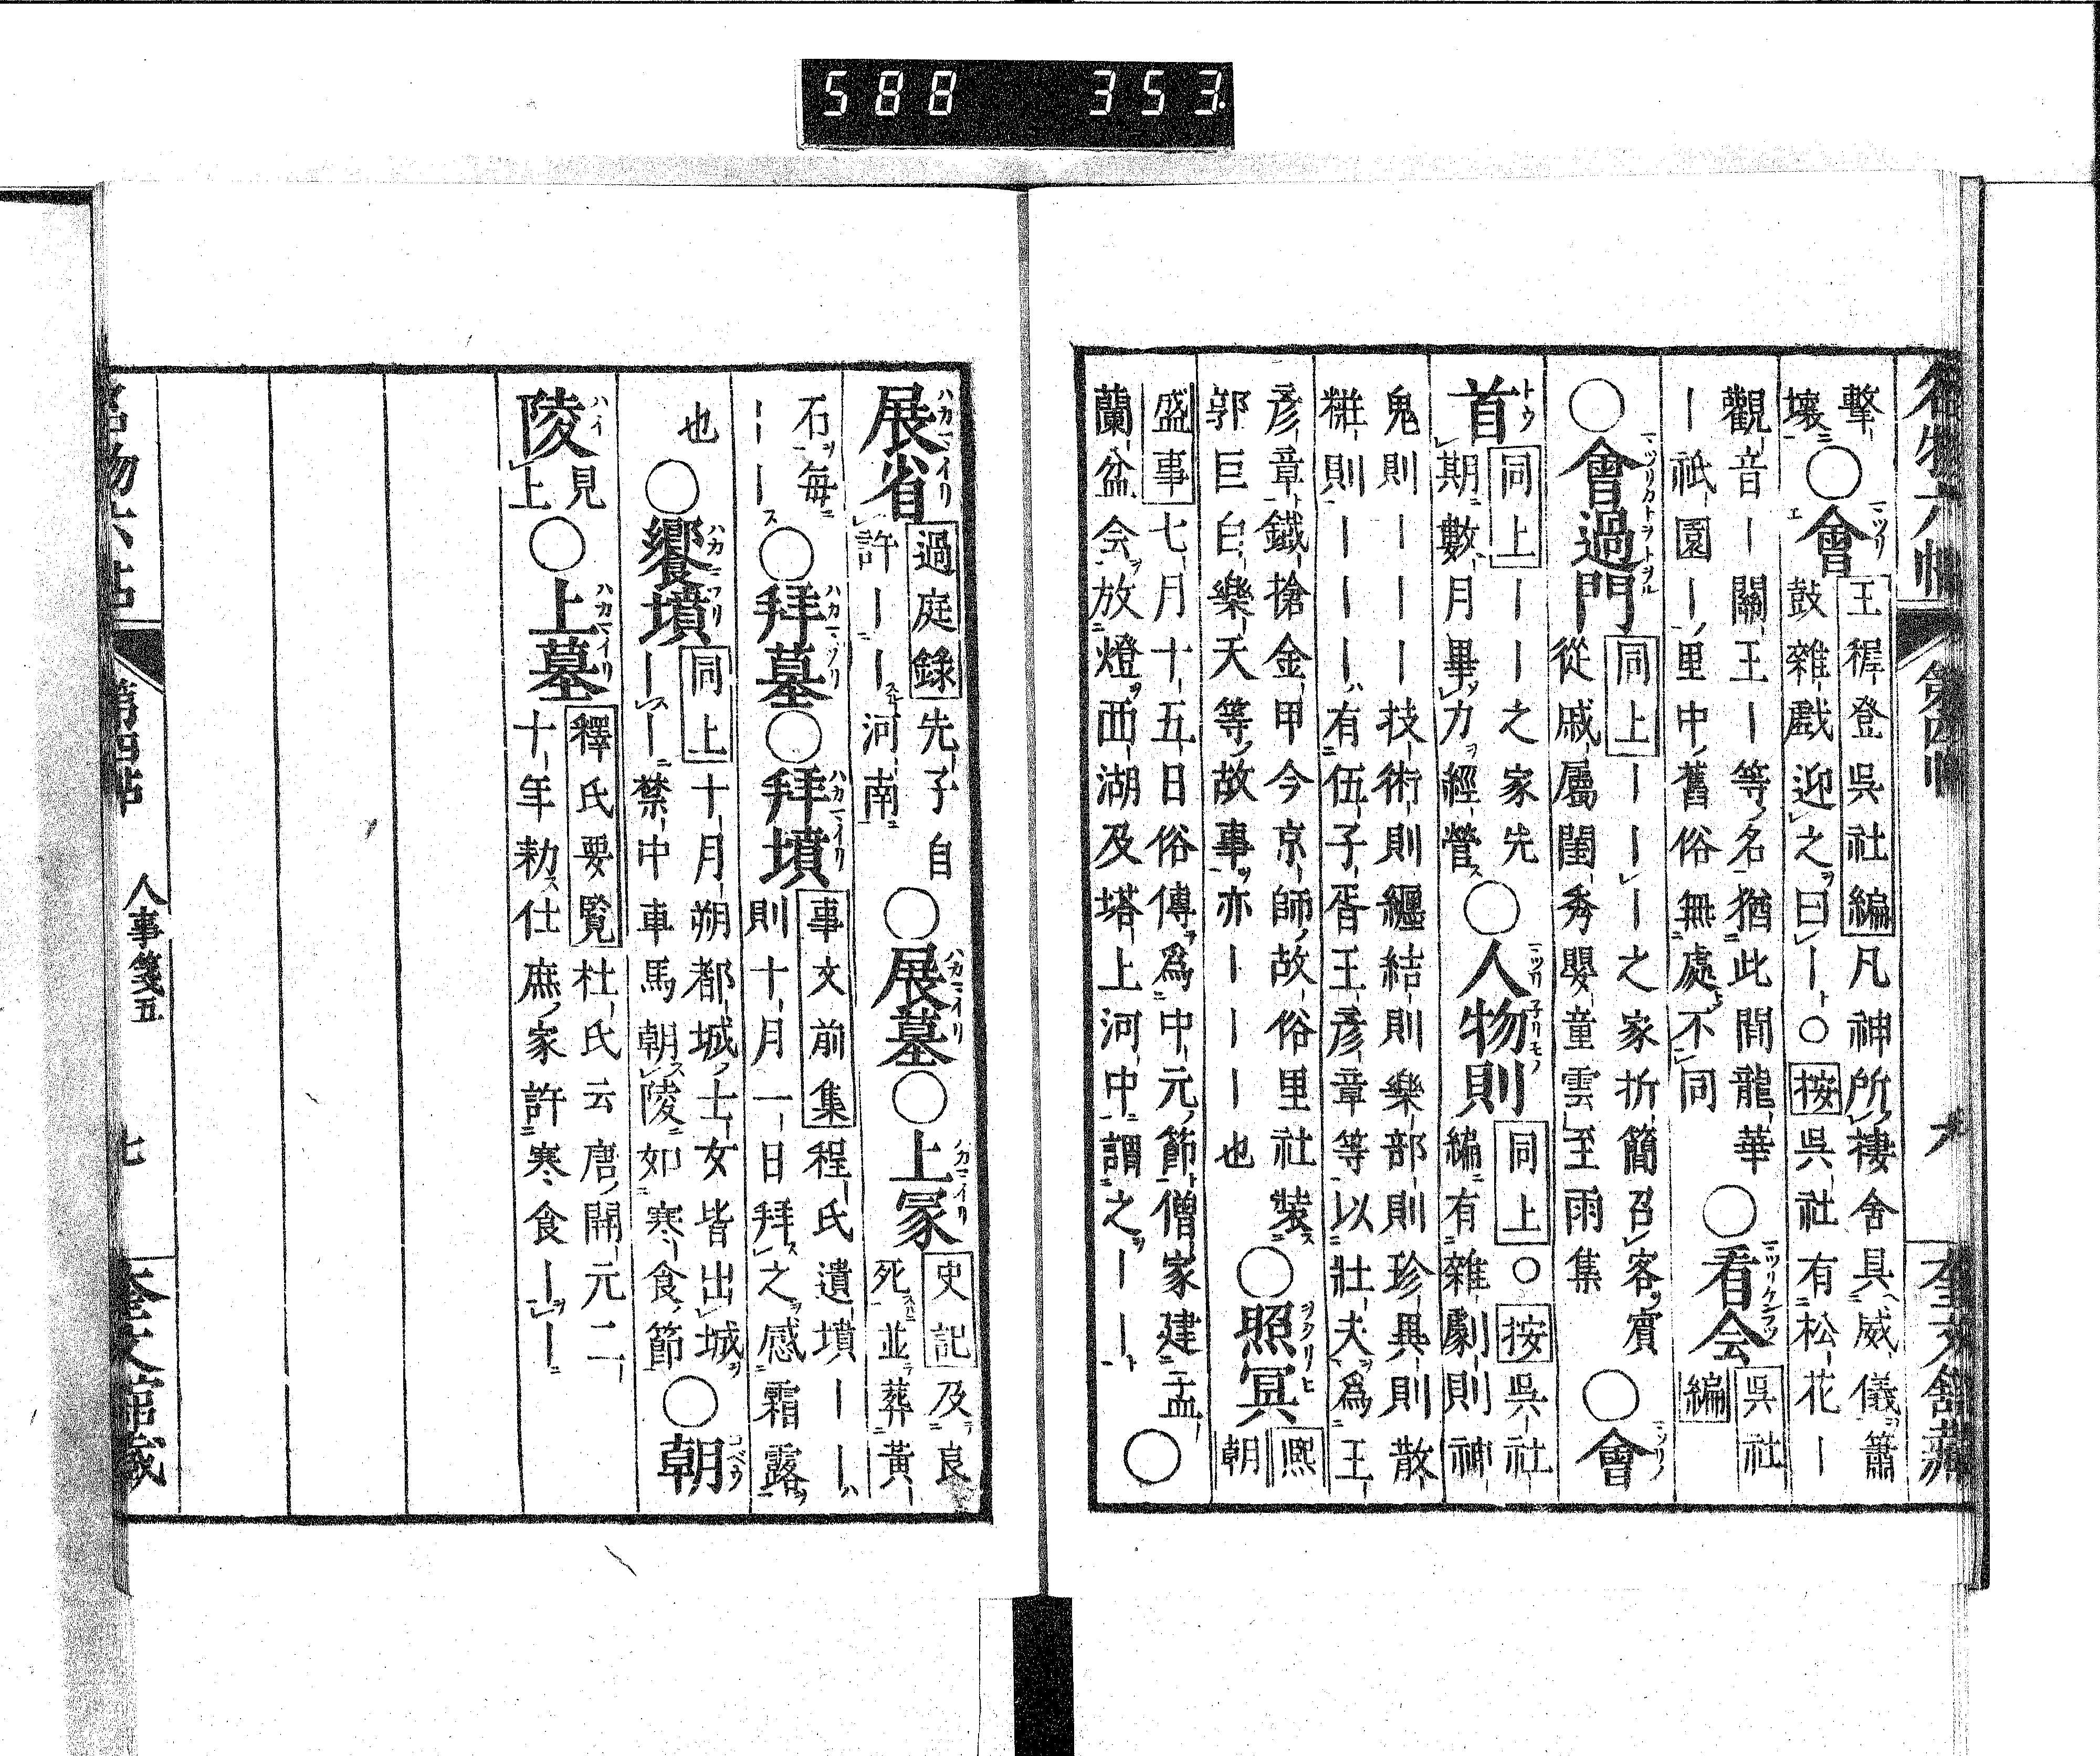 588 353
名物六帖 第四帖 六 奎文館蔵
擊
壤
○會
王穉登吳社編凡神所棲舍具威儀簫
鼓雜戲迎之曰ー○按吳社有松花ー
觀音ー關王ー等名猶此間龍華
ー祇園ー里中舊俗無處不同
○看会
吳社
編
○會過門
同上ーーー之家折簡召客賓
從戚屬閨秀嬰童雲至雨集
○會
首
同上ーー之家先
期數月畢力經營
○人物則
同上○按吳社
編有雜劇則神
鬼則ーーーー技術則纏結則樂部則珍具則散
糚則ーーーー有伍子胥王彥章等以壯夫爲王
彥章鐵搶金甲今京師故俗里社裝
郭巨白樂天等故事亦ーーー也
○照冥
熙
朝
盛事七月十五日俗傳爲中元節僧家建盂
蘭盆会放燈西湖及塔上河中謂之ーー
○
展省
過庭錄先子自
許ーー河南
○展墓○上冢
史記及良
死並葬黃
石每
ーー
○拜墓○拜墳
事文前集程氏遺墳ーー
則十月一日拜之感霜露
也
○饗墳
同上十月朔都城士女皆出城
ーー禁中車馬朝陵如寒食節
○朝
陵
見
上
○上墓
釋氏要覧杜氏云唐開元二
十年勑仕庶家許寒食ーー
名物六帖 第四帖 人事箋五 七 奎文館蔵